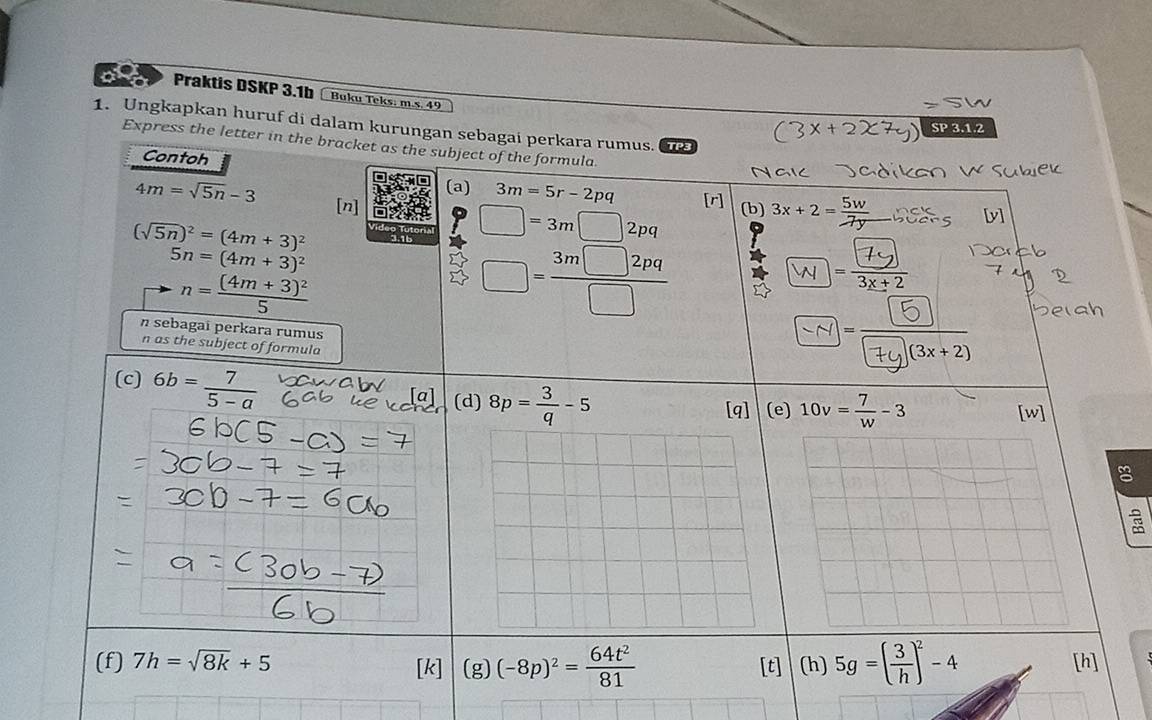 Praktis DSKP 3.1b Buku Teks: m.s. 49
= 5W
1. Ungkapkan huruf di dalam kurungan sebagai perkara rumus. TP3
(3x + 2x7y) SP 3.1.2
Express the letter in the bracket as the subject of the formula.
Nak Jadikan W subjek
Contoh
4m = √5n − 3 [n]
Video Tutorial
3.1b
(√5n)² = (4m + 3)²
5n = (4m + 3)²
n = (4m + 3)²/5
n sebagai perkara rumus
n as the subject of formula
(a) 3m = 5r − 2pq [r]
□ = 3m □ 2pq
□ = 3m □ 2pq/□
(b) 3x + 2 = 5w/7y [y]
nck buang
W = 7y/3x + 2
Darab
7y 2
belah
-N = 5/7y(3x + 2)
(c) 6b = 7/5 − a [a]
bawabr
6ab ke kanan
6b(5 - a) = 7
= 30b - 7 = 7
= 30b - 7 = 6ab
= a = (30b - 7)/6b
(d) 8p = 3/q − 5 [q]
(e) 10v = 7/w − 3 [w]
03
Bab
(f) 7h = √8k + 5 [k]
(g) (−8p)² = 64t²/81 [t]
(h) 5g = (3/h)² − 4 [h]